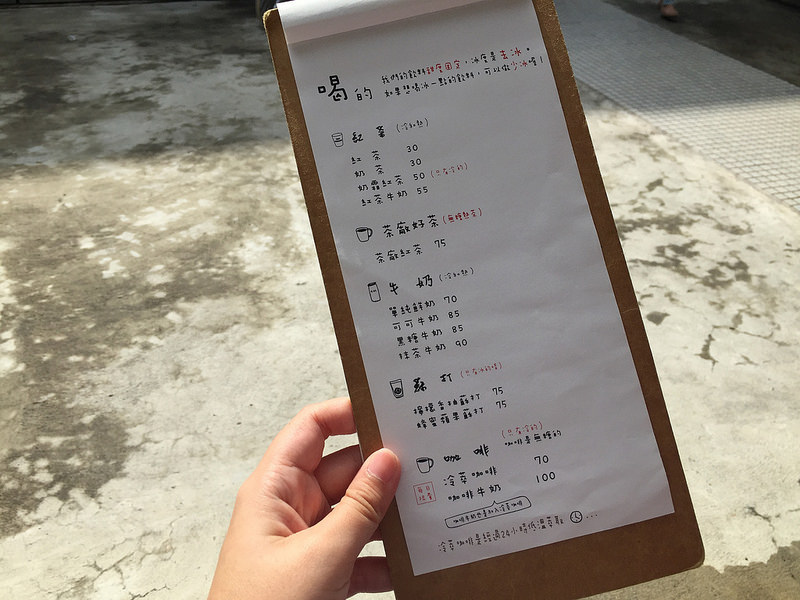 喝的
我們的飲料甜度固定，冰度是去冰。
如果想喝冰一點的飲料，可以做少冰喔！
紅茶（冷和熱）
紅茶 30
奶茶 30
奶霜紅茶 50（只有冷的）
紅茶牛奶 55
茶廠好茶（無糖熱茶）
茶廠紅茶 75
牛奶（冷和熱）
單純鮮奶 70
可可牛奶 85
黑糖牛奶 85
抹茶牛奶 90
蘇打（只有冰的唷）
檸檬香柚蘇打 75
蜂蜜蘋果蘇打 75
咖啡（只有冷的）
咖啡是無糖的
冷萃咖啡 70
咖啡牛奶 100
每日限量
咖啡牛奶也是加入冷萃咖啡
冷萃咖啡是經過24小時低溫萃取...